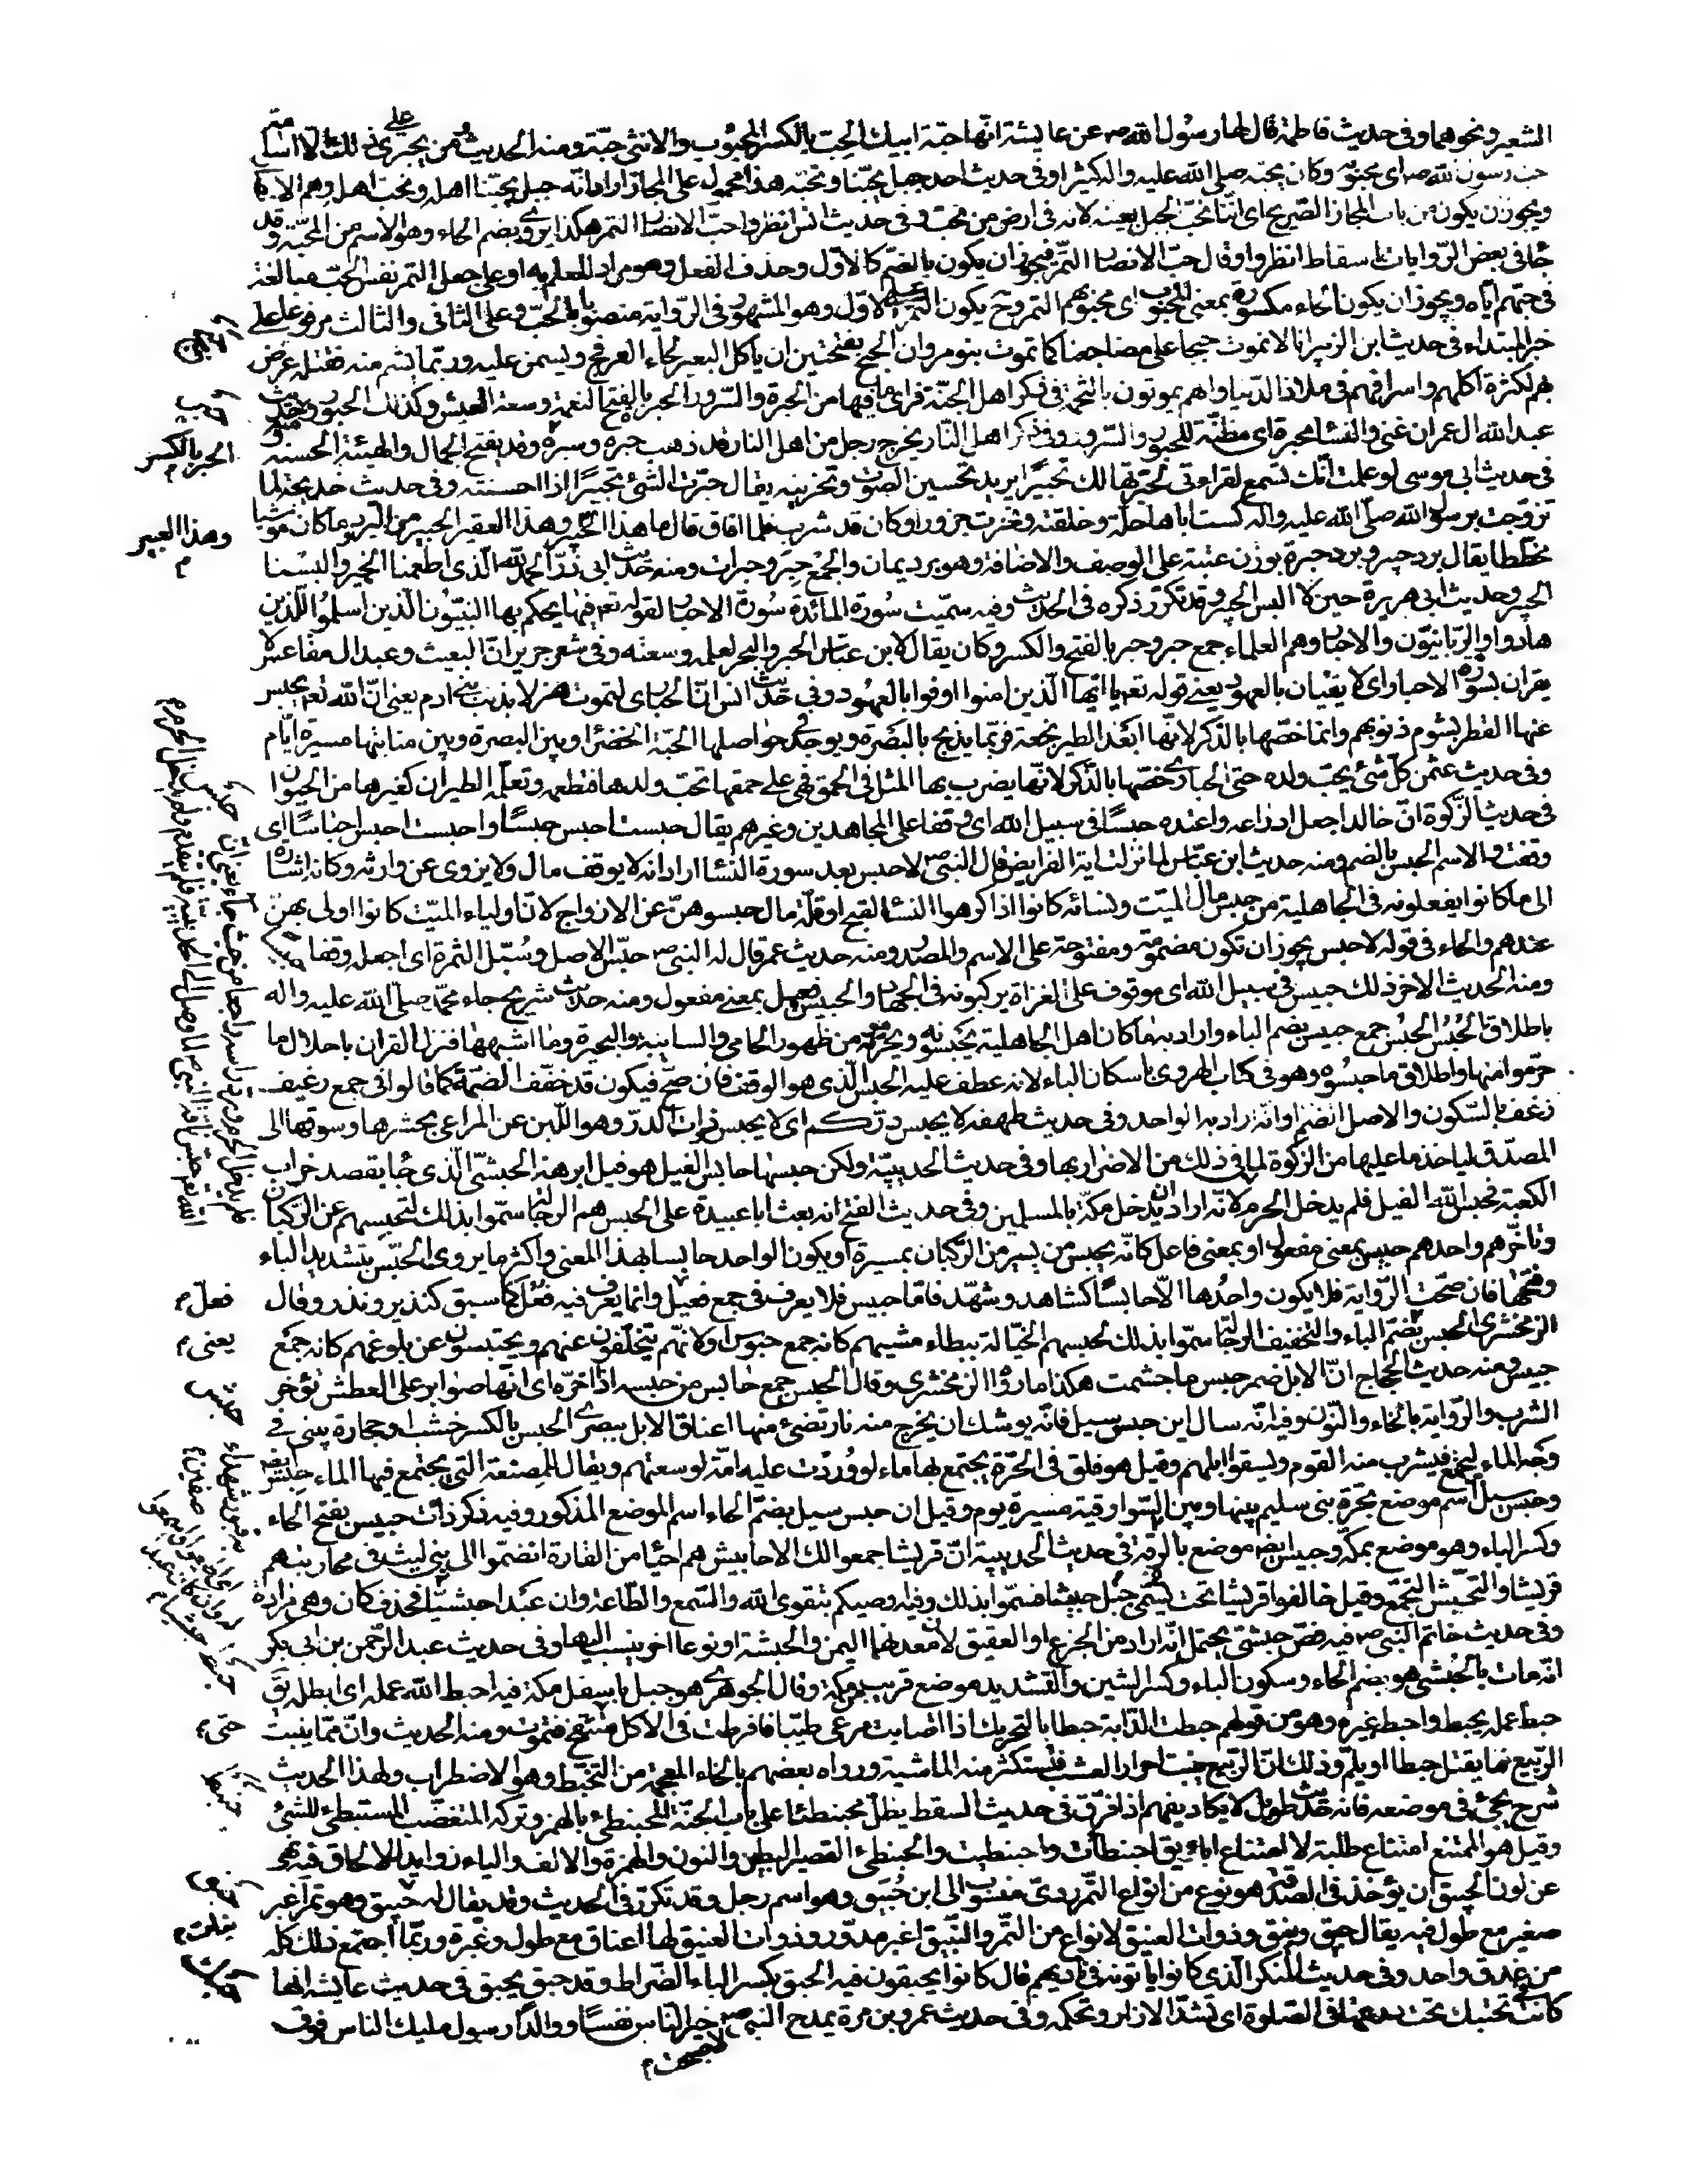 الشعير ونحوهما وفى حديث فاطمة قال لها رسول الله ص عن عايشة انها حبة ابيك الحب بالكسر المحبوب والانثى حبة ومنه الحديث ومن يجترئ على ذلك الا اسامة
حب رسول الله ص اى محبوبه وكان يحبه صلى الله عليه واله كثيرا وفى حديث احد جبل يحبنا ونحبه هذا محمول على المجاز اراد انه جبل يحبنا اهله ونحب اهله وهم الانصار
ويجوز ان يكون من باب المجاز الصريح اى اننا نحب الجبل بعينه لانه فى ارض من نحب وفى حديث انس انظروا حب الانصار التمر هكذا يروى بضم الحاء وهو الاسم من المحبة وقد
جا فى بعض الروايات باسقاط انظروا وقال حب الانصار التمر فيجوز ان يكون بالضم كالاول وحذف الفعل وهو مراد للعلم به او على جعل التمر نفس الحب مبالغة
فى حبهم اياه ويجوز ان يكون الحاء مكسورة بمعنى المحبوب اى محبوبهم التمر وح يكون التمر على الاول وهو المشهور فى الرواية منصوبا بالحب وعلى الثانى والثالث مرفوعا على
خبر المبتداء فى حديث ابن الزبير انا لا نموت حبجا على مضاجعنا كما تموت بنو مروان الحبج بفتحتين ان ياكل البعير لحاء العرفج ويسمن عليه وربما بشم منه فقتله عرض
بهم لكثرة اكلهم واسرافهم فى ملاذ الدنيا وانهم يموتون بالتخمة فى ذكر اهل الجنة فراى ما فيها من الحبرة والسرور الحبر بالفتح النعمة وسعة العيش وكذلك الحبور ومنه حديث
عبد الله ال عمران غنى والنساء محبرة اى مظنة للحبور والسرور وفى ذكر اهل النار يخرج رجل من اهل النار قد ذهب حبره وسبره وقد يفتح الجمال والهيئة الحسنة و
فى حديث ابى موسى لو علمت انك تسمع لقراءتى لحبرتها لك تحبيرا يريد تحسين الصوت وتحزينه يقال حبرت الشئ تحبيرا اذا احسنته وفى حديث خديجة لما
تزوجت برسول الله صلى الله عليه واله كست اباها حلة وخلقته ونحرت جزورا وكان قد شرب فلما افاق قال ما هذا الحبير وهذا العقير الحبير من البرود ما كان موشيا
مخططا يقال برد حبير وبرد حبرة بوزن عنبة على الوصف والاضافة وهو برد يمان والجمع حبر وحبرات ومنه حديث ابى ذر الحمد لله الذى اطعمنا الخمير والبسنا
الحبير وحديث ابى هريرة حين لا البس الحبير وقد تكرر ذكره فى الحديث وفيه سميت سورة المائدة سورة الاحبار لقوله تعم فيها يحكم بها النبيون الذين اسلموا للذين
هادوا والربانيون والاحبار وهم العلماء جمع حبر وحبر بالفتح والكسر وكان يقال لابن عباس الحبر والبحر لعلمه وسعته وفى شعر جرير ان البعيث وعبد ال مقاعس لا
يقران بسورة الاحبار اى لا يفيان بالعهود يعنى قوله تعم يا ايها الذين امنوا اوفوا بالعهود وفى حديث انس ان الحبارى لتموت هزلا بذنب بنى ادم يعنى ان الله تعم يحبس
عنها القطر بشوم ذنوبهم وانما خصها بالذكر لانها ابعد الطير نجعة فربما يذبح بالبصرة ويوجد فى حواصلها الحبة الخضراء وبين البصرة وبين منابتها مسيرة ايام
وفى حديث عثمن كل شئ يحب ولده حتى الحبارى خصها بالذكر لانها يضرب بها المثل فى الحمق فهى على حمقها تحب ولدها فتطعمه وتعلمه الطيران كغيرها من الحيوان
فى حديث الزكوة ان خالدا جعل ادراعه واعتده حبسا فى سبيل الله اى وقفا على المجاهدين وغيرهم يقال حبست احبس حبسا واحبست احبس احباسا اى
وقفت والاسم الحبس بالضم ومنه حديث ابن عباس لما نزلت اية الفرايض قال النبى ص لا حبس بعد سورة النساء اراد انه لا يوقف مال ولا يزوى عن وارثه وكانه اشارة
الى ما كانوا يفعلونه فى الجاهلية من حبس مال الميت ونسائه كانوا اذا كرهوا النساء لقبح او قلة مال حبسوهن عن الازواج لان اولياء الميت كانوا اولى بهن
عندهم والحاء فى قوله لا حبس يجوز ان تكون مضمومة ومفتوحة على الاسم والمصدر ومنه حديث عمر قال له النبى ص حبس الاصل وسبل الثمرة اى اجعله وقفا
ومنه الحديث الاخر ذلك حبيس فى سبيل الله اى موقوف على الغزاة يركبونه فى الجهاد والحبيس فعيل بمعنى مفعول ومنه حديث شريح جاء محمد صلى الله عليه واله
باطلاق الحبس الحبس جمع حبيس بضم الباء واراد به ما كان اهل الجاهلية يحبسونه ويحرمونه من ظهور الحامى والسايبة والبحيرة وما اشبهها فنزل القران باحلال ما
حرموا منها واطلاق ما حبسوه وهو فى كتاب الهروى باسكان الباء لانه عطف عليه الحبس الذى هو الوقف فان صح فيكون قد خفف الضمة كما قالوا فى جمع رغيف
رغف بالسكون والاصل الضم او انه اراد به الواحد وفى حديث طهفة لا يحبس دركم اى لا يحبس ذوات الدر وهو اللبن عن المراعى بحشرها وسوقها الى
المصدق لياخذ ما عليها من الزكوة لما فى ذلك من الاضرار بها وفى حديث الحديبية ولكن حبسها حابس الفيل هو فيل ابرهة الحبشى الذى جا يقصد خراب
الكعبة فحبس الله الفيل فلم يدخل الحرم لانه اراد ان يدخل مكة بالمسلمين وفى حديث الفتح انه بعث ابا عبيدة على الحبس هم الرجالة سموا بذلك لتحبسهم عن الركبان
وتاخرهم واحدهم حبيس بمعنى مفعول او بمعنى فاعل كانه يحبس من يسير من الركبان بمسيره او يكون الواحد حابسا بهذا المعنى واكثر ما يروى الحبس بتشديد الباء
وفتحها فان صحت الرواية فلا يكون واحدها الا حابسا كشاهد وشهد فاما حبيس فلا يعرف فى جمع فعيل وانما يعرف فيه فعل كما سبق كنذير ونذر وقال
الزمخشرى الحبس بضم الباء والتخفيف الرجالة سموا بذلك لحبسهم الخيالة ببطاء مشيهم كانه جمع حبوس او لانهم يتخلفون عنهم ويحتبسون عن بلوغهم كانه جمع
حبيس ومنه حديث الحجاج ان الابل ضمر حبس ما جشمت هكذا رواه الزمخشرى وقال الحبس جمع حابس من حبسه اذا اخره اى انها صوابر على العطش تؤخر
الشرب والرواية بالخاء والنون وفيه انه سال اين حبس سيل فانه يوشك ان يخرج منه نار تضئ منها اعناق الابل ببصرى الحبس بالكسر خشب او حجارة يبنى فى
وجه الماء ليجتمع فيشرب منه القوم ويسقوا ابلهم وقيل هو فلق فى الحرة يجتمع بها ماء لو وردت عليه امة لوسعتهم ويقال للمصنعة التى يجتمع فيها الماء حبس ايضه
وحبس سيل اسم موضع بحرة بنى سليم بينها وبين السوارقية مسيرة يوم وقيل ان حبس سيل بضم الحاء اسم الموضع المذكور وفيه ذكر ذات حبيس بفتح الحاء
وكسر الباء وهو موضع بمكة وحبيس ايضه موضع بالرقة فى حديث الحديبية ان قريشا جمعوا لك الاحابيش هم احياء من القارة انضموا الى بنى ليث فى محاربتهم
قريشا والتحبش التجمع وقيل حالفوا قريشا تحت جبل يسمى حبشيا فسموا بذلك وفيه اوصيكم بتقوى الله والسمع والطاعة وان عبدا حبشيا فحذف كان وهى مرادة
وفى حديث خاتم النبى ص فيه فص حبشى يحتمل انه اراد من الجزع او العقيق لان معدنهما اليمن والحبشة او نوعا اخر ينسب اليها وفى حديث عبد الرحمن بن ابى بكر
انه مات بالحبشى هو بضم الحاء وسكون الباء وكسر الشين والتشديد موضع قريب من مكة وقال الجوهرى هو جبل باسفل مكة فيه احبط الله عمله اى ابطله يق
حبط عمله يحبط واحبط غيره وهو من قولهم حبطت الدابة حبطا بالتحريك اذا اصابت مرعى طيبا فافرطت فى الاكل حتى تنتفخ فتموت ومنه الحديث وان مما ينبت
الربيع ما يقتل حبطا او يلم وذلك ان الربيع ينبت احرار العشب فتستكثر منه الماشية ورواه بعضهم بالخاء المعجمة من التخبط وهو الاضطراب ولهذا الحديث
شرح يجئ فى موضعه فانه حديث طويل لا يكاد يفهم اذا فرق فى حديث السقط يظل محبنطئا على باب الجنة المحبنطئ بالهمز وتركه المتغضب المستبطئ للشئ
وقيل هو الممتنع امتناع طلبة لا امتناع اباء يق احبنطات واحبنطيت والحبنطئ القصير البطين والنون والهمزة والالف والياء زوايد للالحاق فيه نهى
عن لون الحبيق ان يؤخذ فى الصدقة هو نوع من انواع التمر ردئ منسوب الى ابن حبيق وهو اسم رجل وقد تكرر فى الحديث وقد يقال له حبيق وهو تمر اغبر
صغير مع طول فيه يقال حبيق ونبيق وذوات العنيق لانواع من التمر والنبيق اغبر مدور وذوات العنيق لها اعناق مع طول وغبرة وربما اجتمع ذلك كله
من عذق واحد وفى حديث المنكر الذى كانوا ياتونه فى ناديهم قال كانوا يحبقون فيه الحبق بكسر الباء الضراط وقد حبق يحبق فى حديث عايشة انها
كانت تحتبك تحت درعها فى الصلوة اى تشد الازار وتحكمه وفى حديث عمرو بن مرة يمدح النبى ص لاصبحت خير الناس نفسا ووالدا رسول مليك الناس فوق
حبج
حبب
الحبر بالكسر
وهذا العبير
م
حبس
فعل م
يعنى م
حبش
حتى م
حبنط
حبق